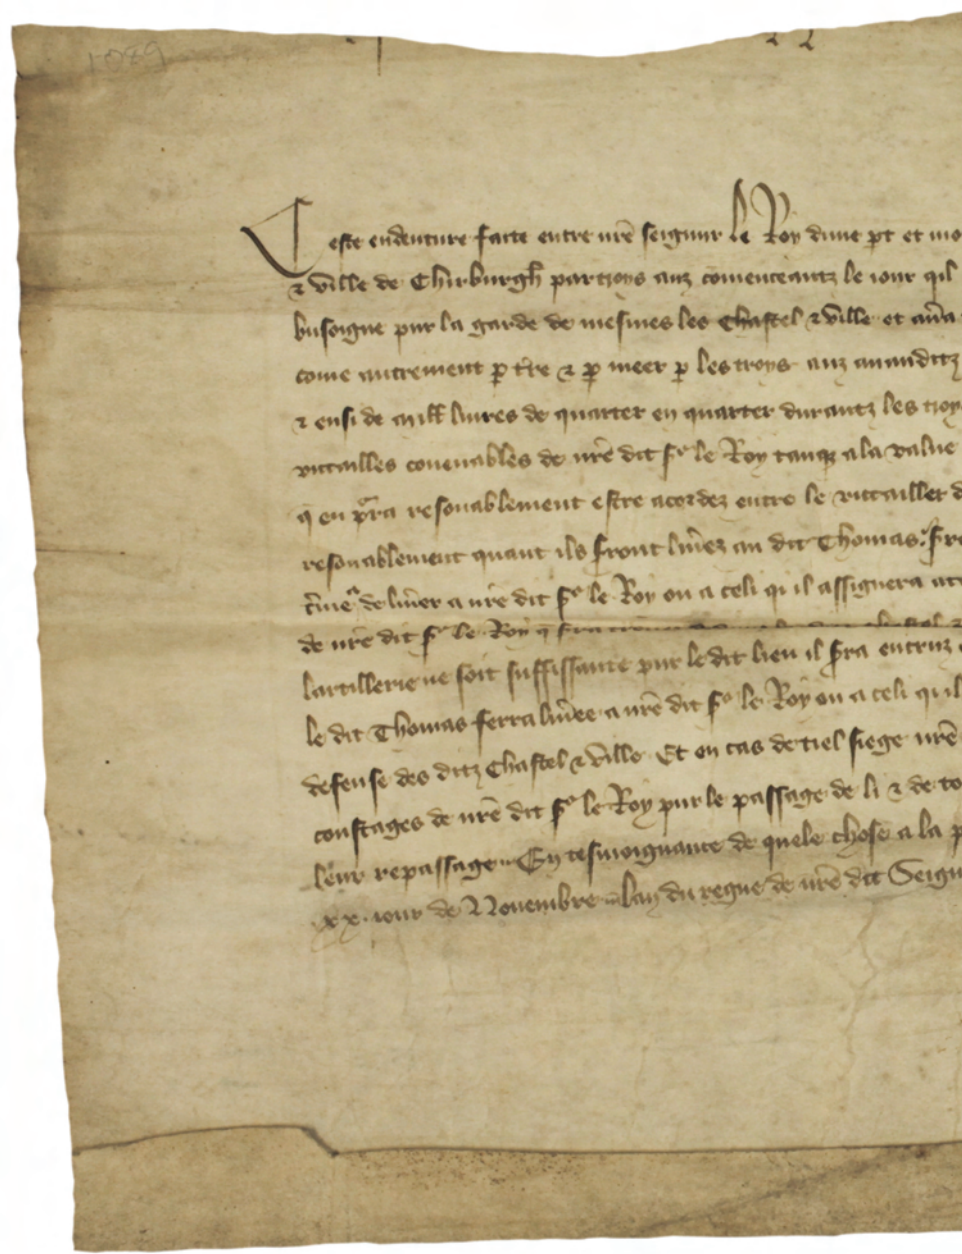 1089
Ceste endenture faite entre nr̃e seignur le Roy dune p̱t et mo
⁊ ville de Chirburgh̃ par troys anz comenceantz le iour qil
busoigne pur la garde de mesmes les Chastel ⁊ ville et
come autrement p̱ t̃re ⁊ p̱ meer p̱ les troys anz auanditz
⁊ ensi de mill̃ liures de quarter en quarter durantz les troy
vitailles couenables de nr̃e dit sʳ le Roy tanqꝫ a la value
q̃ en p̱ra resonablement estre acordez entre le vitailler d
resonablement quant ils s̃ront liũez au dit Thomas
de liũer a nr̃e dit sʳ le Roy ou a celi qi il assignera
de nr̃e dit sʳ le Roy q̃
lartillerie ne soit suffissante pur le dit lieu il s̃ra
le dit Thomas serra liũee a nr̃e dit sʳ le Roy ou a celi qil
defense des ditz Chastel ⁊ ville Et en cas de tiel siege nr̃e
coustages de nr̃e dit sʳ le Roy pur le passage de li ⁊ de to
leur repassage En tesmoignance de quele chose a la p
xx. iour de Nouembre lan du regne de nr̃e dit Seign